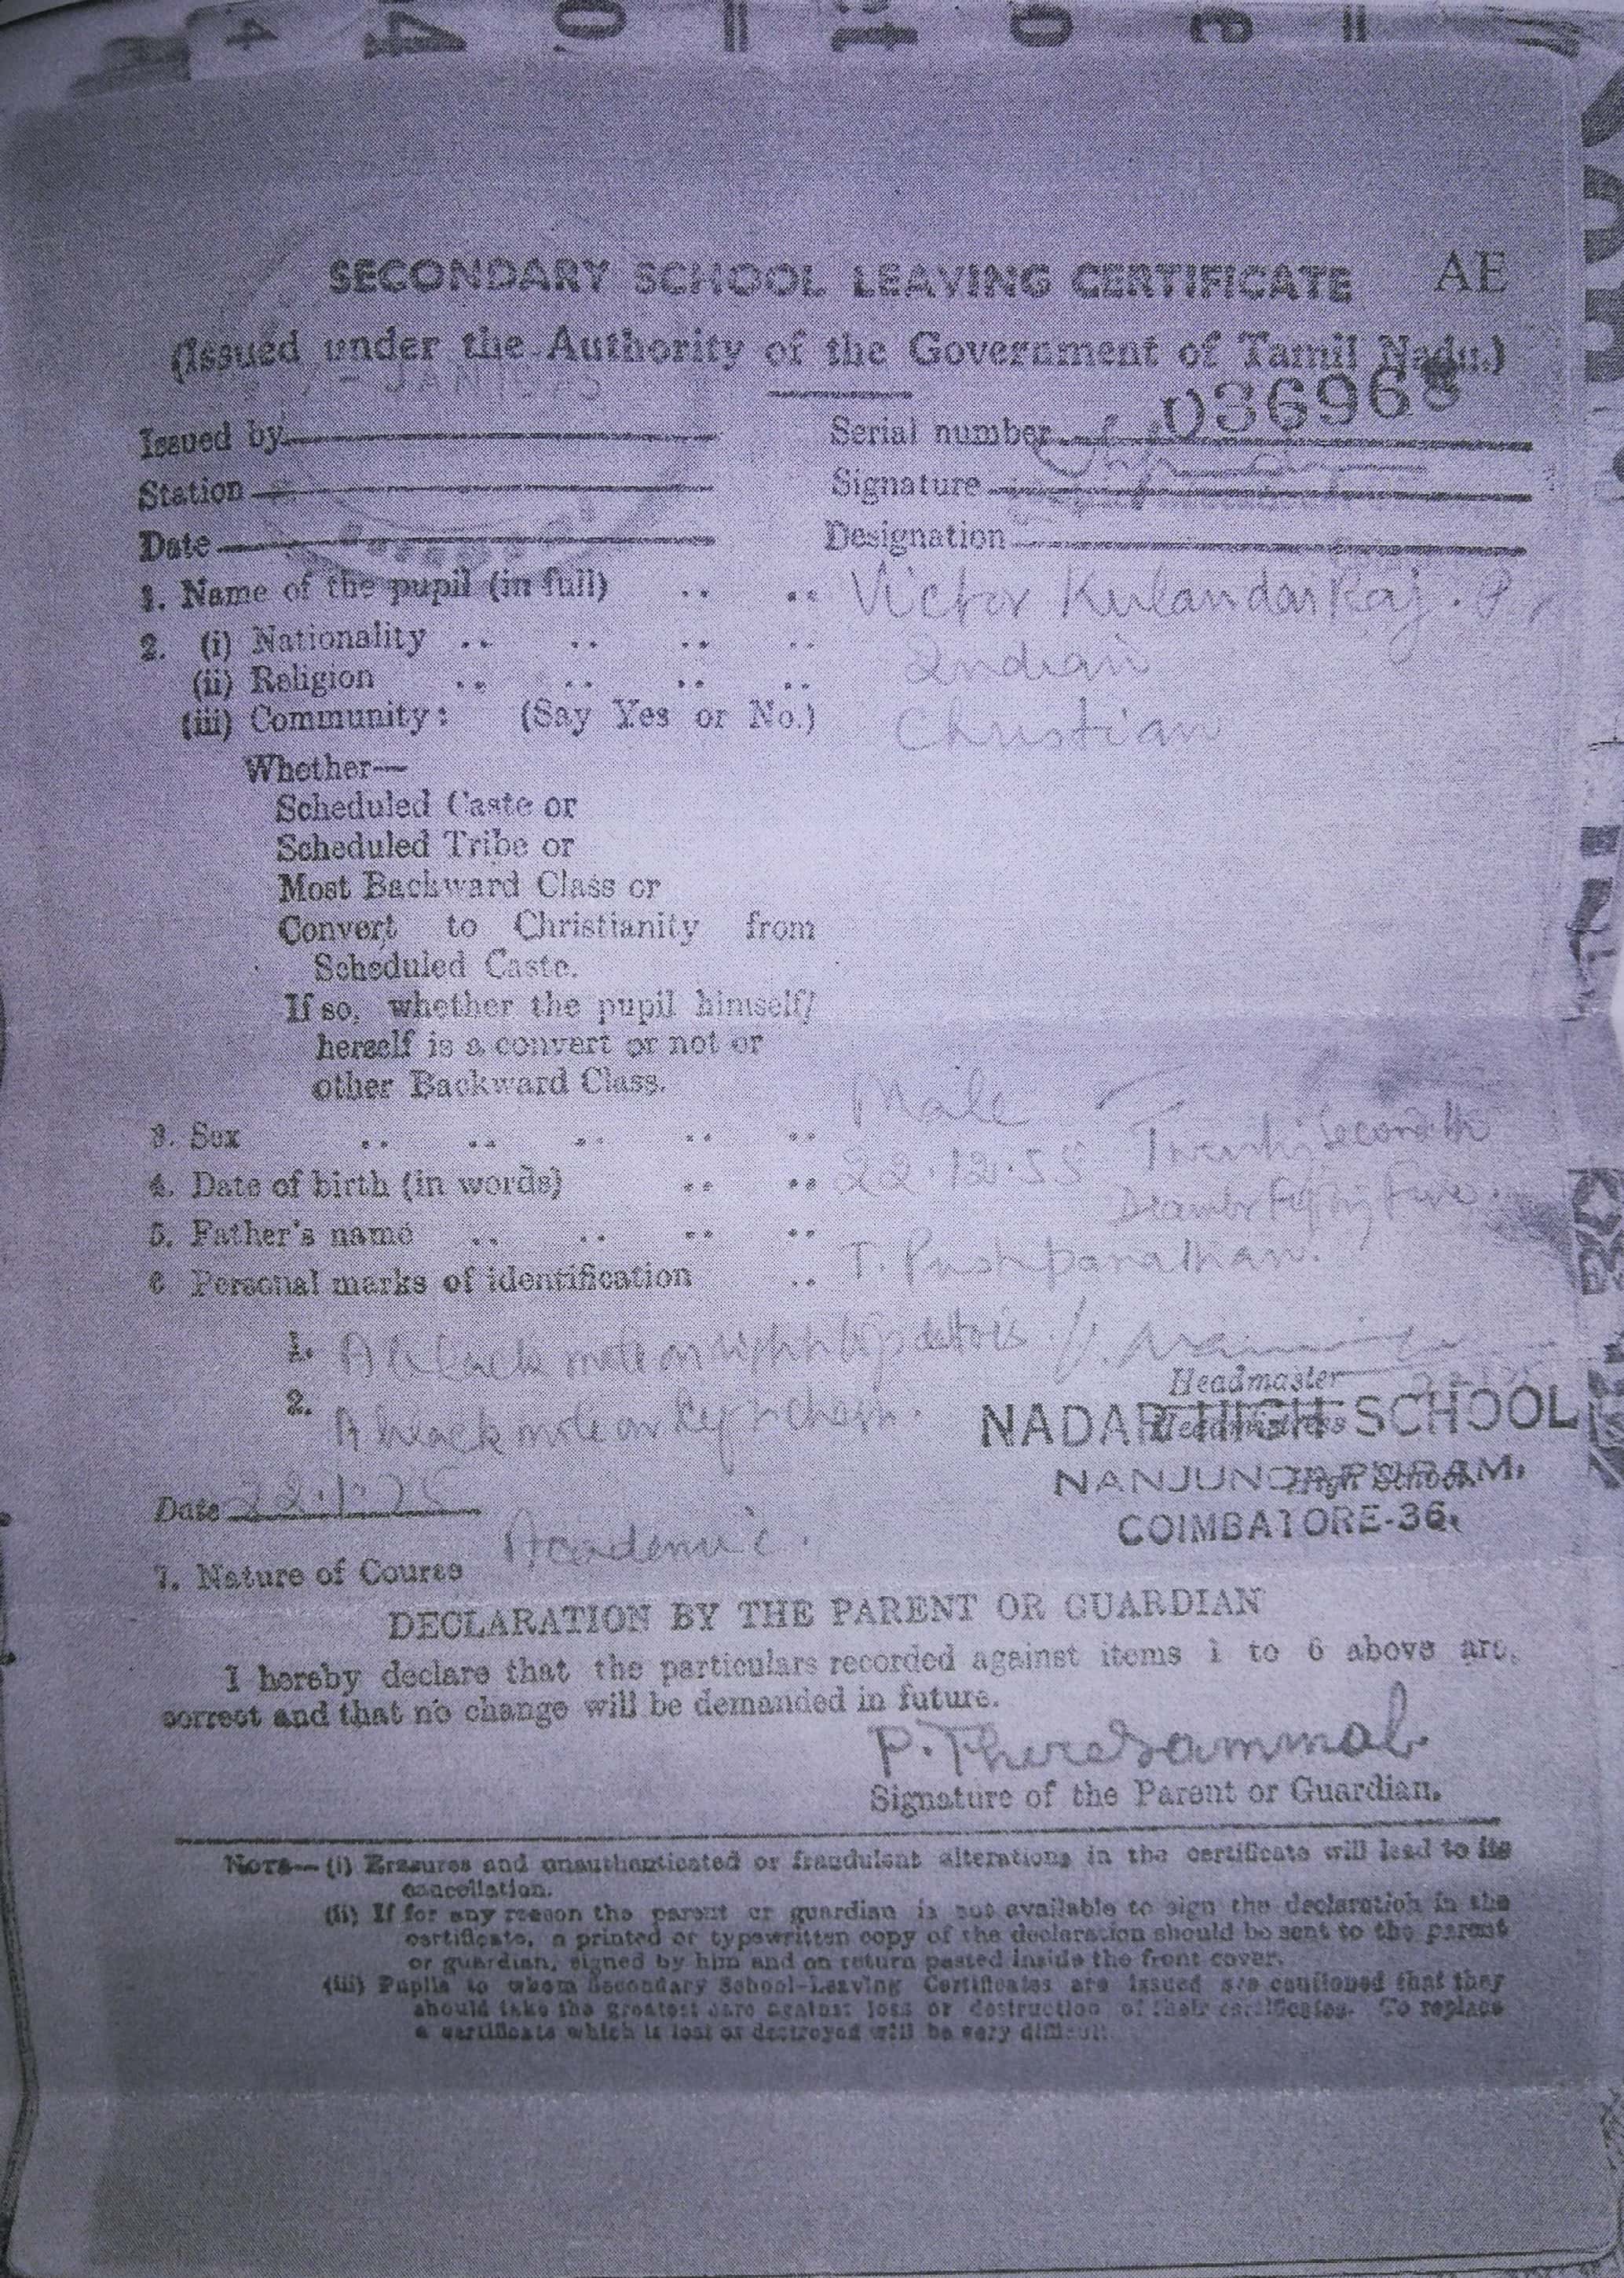 SECONDARY SCHOOL LEAVING CERTIFICATE AE
(Issued under the Authority of the Government of Tamil Nadu.)
JAN 1975
Issued by Serial number 036968
Station Signature
Date Designation
1. Name of the pupil (in full) .. .. Victor Kulandai Raj. P.
2. (i) Nationality .. .. .. .. Indian
(ii) Religion .. .. .. .. Christian
(iii) Community: (Say Yes or No.)
Whether—
Scheduled Caste or
Scheduled Tribe or
Most Backward Class or
Convert to Christianity from
Scheduled Caste.
If so, whether the pupil himself/
herself is a convert or not or
other Backward Class.
3. Sex .. .. .. .. .. Male
4. Date of birth (in words) .. .. 22.12.55 Twenty Second
5. Father's name .. .. .. .. T. Pushpanathan.
6 Personal marks of identification ..
1. A black mole on right
2. A black mole on
Headmaster
Headmistress
NADAR HIGH SCHOOL
High School.
NANJUNDAPURAM,
COIMBATORE-36.
Date 22.1.75
7. Nature of Course Academic.
DECLARATION BY THE PARENT OR GUARDIAN
I hereby declare that the particulars recorded against items 1 to 6 above are
correct and that no change will be demanded in future.
P. Theresammal
Signature of the Parent or Guardian.
NOTE—(i) Erasures and unauthenticated or fraudulent alterations in the certificate will lead to its
cancellation.
(ii) If for any reason the parent or guardian is not available to sign the declaration in the
certificate, a printed or typewritten copy of the declaration should be sent to the parent
or guardian, signed by him and on return pasted inside the front cover.
(iii) Pupils to whom Secondary School-Leaving Certificates are issued are cautioned that they
should take the greatest care against loss or destruction of their certificates. To replace
a certificate which is lost or destroyed will be very difficult.